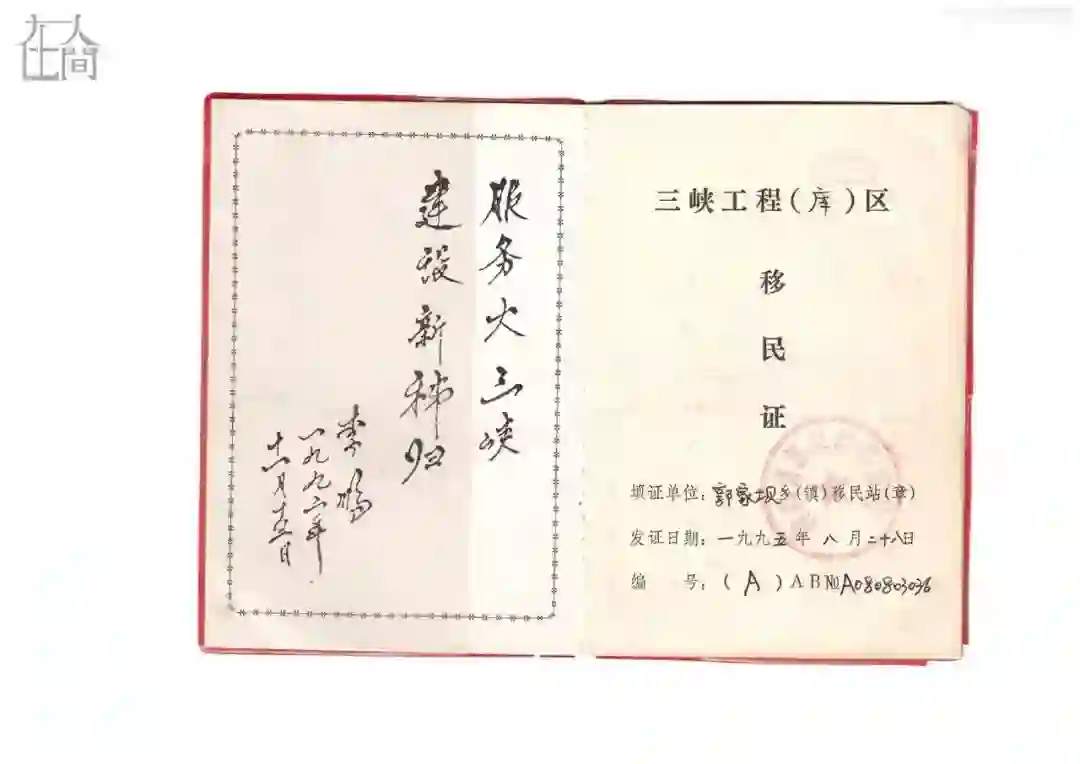 在人間
服务大三峡
建设新秭归
李鹏
一九九二年
十一月 日
三峡工程(库)区
移
民
证
填证单位：郭家坝乡(镇)移民站(章)
发证日期：一九九五年 八月二十八日
编 号：(A)AB№A080803036